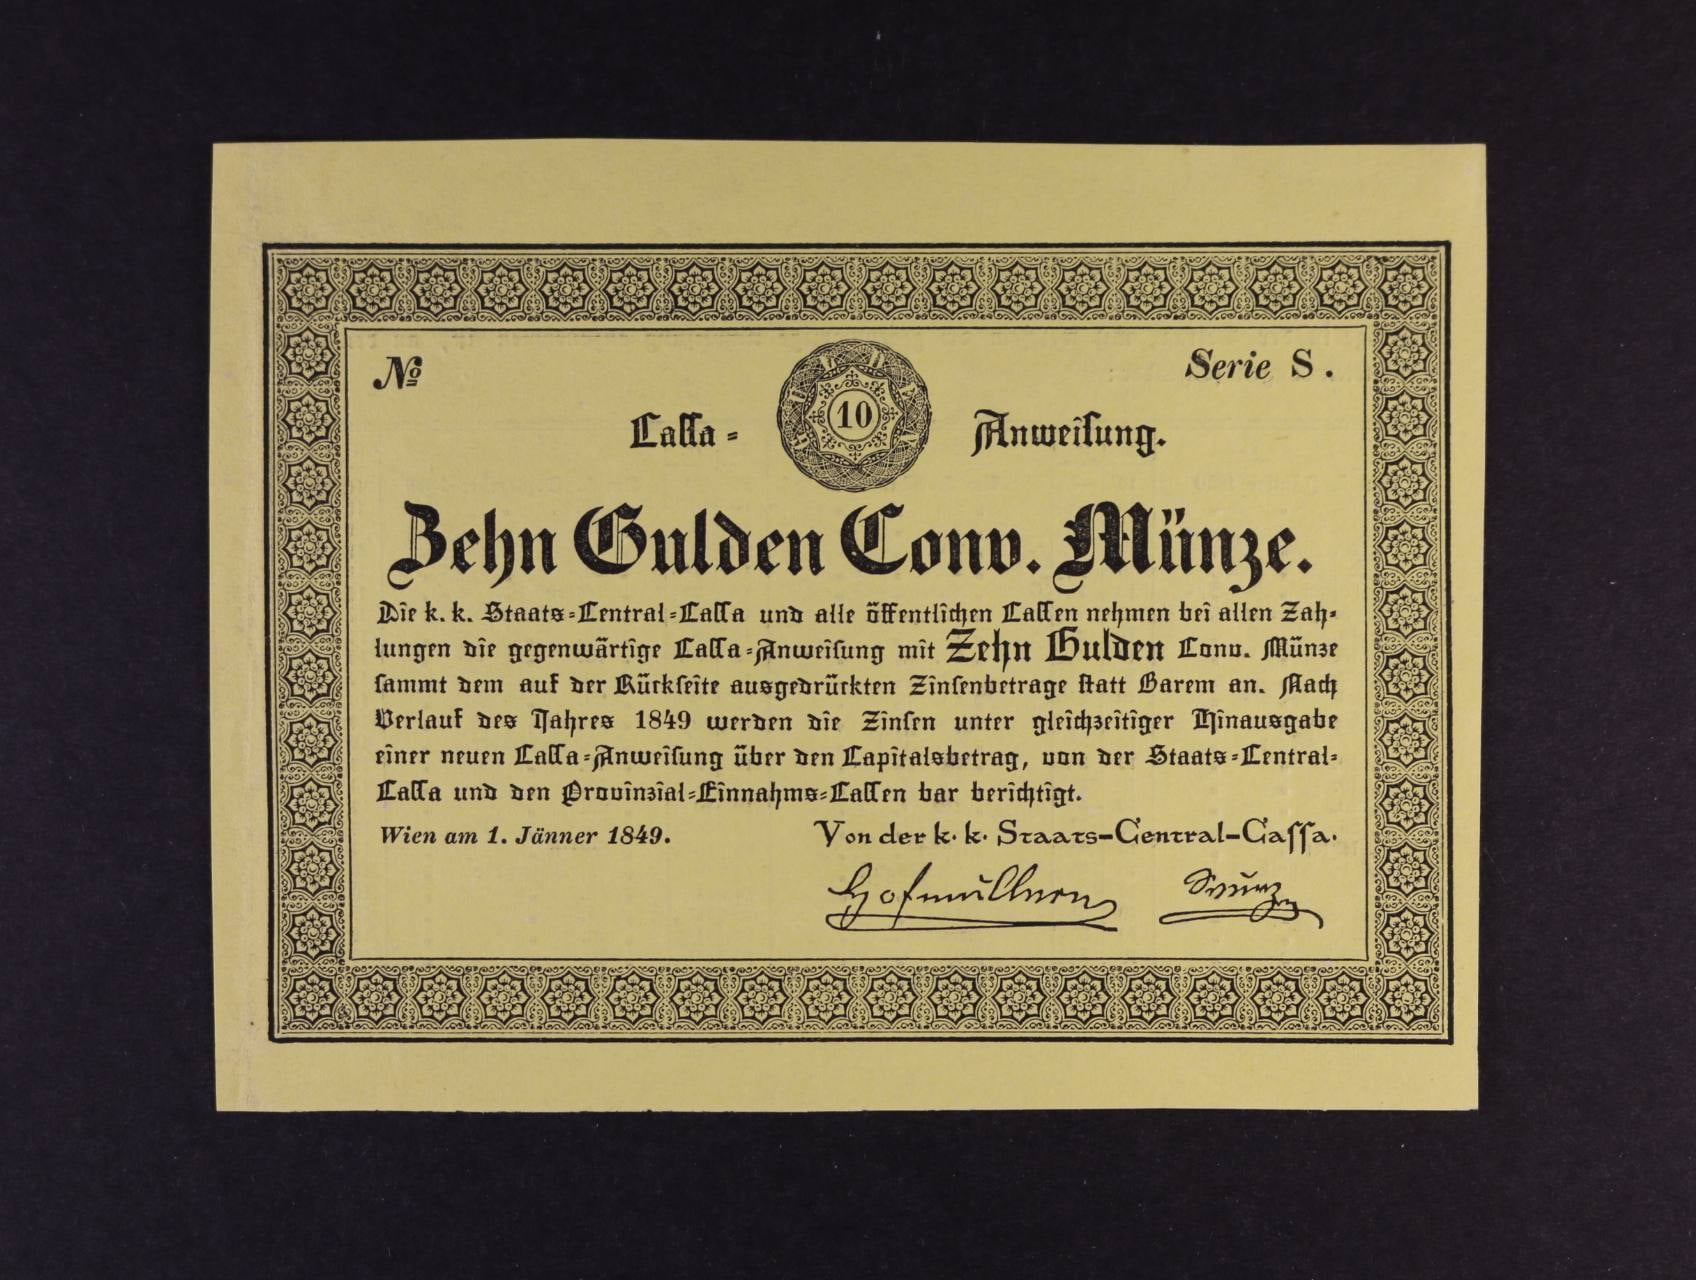 No Serie S.
Cassa = 10 Anweisung.
Zehn Gulden Conv. Münze.
Die k. k. Staats=Central=Cassa und alle öffentlichen Cassen nehmen bei allen Zah=
lungen die gegenwärtige Cassa=Anweisung mit Zehn Gulden Conv. Münze
sammt dem auf der Rückseite ausgedrückten Zinsenbetrage statt Barem an. Nach
Verlauf des Jahres 1849 werden die Zinsen unter gleichzeitiger Hinausgabe
einer neuen Cassa=Anweisung über den Capitalsbetrag, von der Staats=Central=
Cassa und den Provinzial=Einnahms=Cassen bar berichtigt.
Wien am 1. Jänner 1849. Von der k. k. Staats-Central-Cassa.